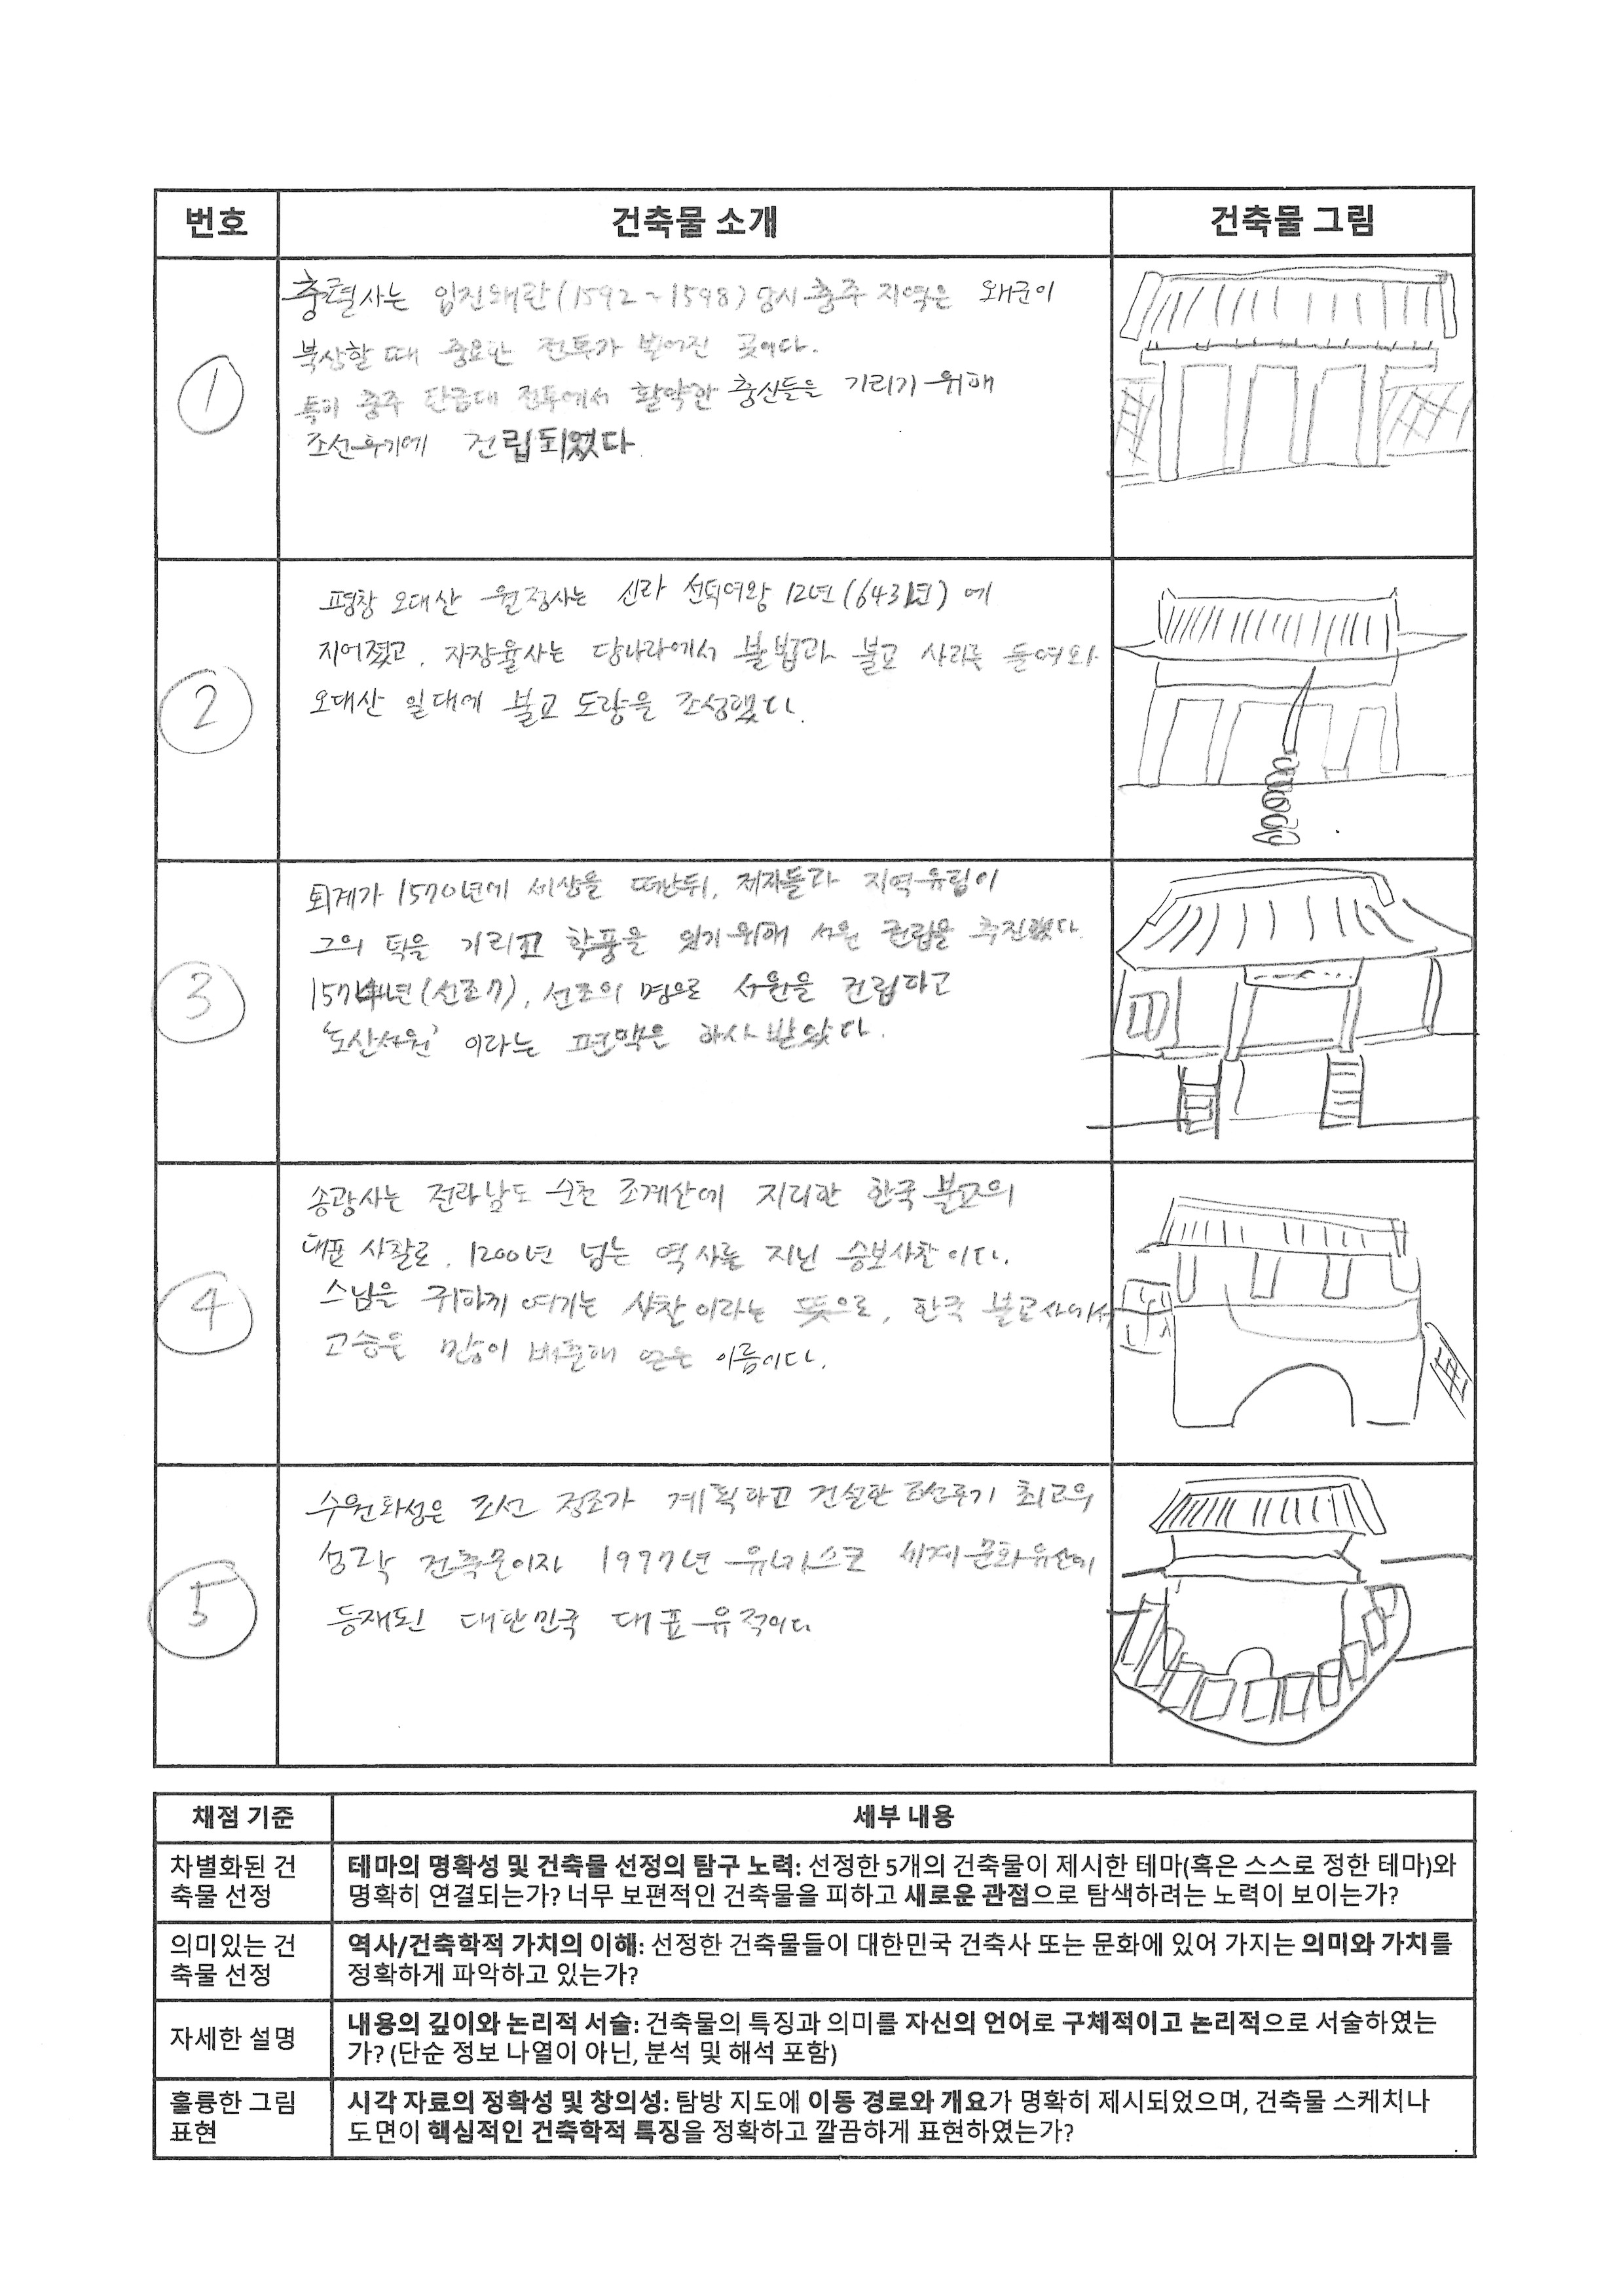 번호
건축물 소개
건축물 그림
1
충렬사는 임진왜란(1592~1598) 당시 충주 지역은 왜군이
북상할 때 중요한 전투가 벌어진 곳이다.
특히 충주 탄금대 전투에서 활약한 충신들을 기리기 위해
조선후기에 건립되었다
2
평창 오대산 월정사는 신라 선덕여왕 12년(643년)에
지어졌고, 자장율사는 당나라에서 불법과 불교 사리를 들여와
오대산 일대에 불교 도량을 조성했다.
3
퇴계가 1570년에 세상을 떠난뒤, 제자들과 지역유림이
그의 덕을 기리고 학풍을 잇기위해 서원 건립을 추진했다.
1574년(선조7), 선조의 명으로 서원을 건립하고
'도산서원' 이라는 편액은 하사 받았다.
4
송광사는 전라남도 순천 조계산에 자리한 한국 불교의
대표 사찰로, 1200년 넘는 역사를 지닌 승보사찰이다.
스님을 귀하게 여기는 사찰이라는 뜻으로, 한국 불교사에서
고승을 많이 배출해 얻은 이름이다.
5
수원화성은 조선 정조가 계획하고 건설한 조선후기 최고의
성곽 건축물이자 1997년 유네스코 세계문화유산에
등재된 대한민국 대표 유적이다
채점 기준
세부 내용
차별화된 건
축물 선정
테마의 명확성 및 건축물 선정의 탐구 노력: 선정한 5개의 건축물이 제시한 테마(혹은 스스로 정한 테마)와
명확히 연결되는가? 너무 보편적인 건축물을 피하고 새로운 관점으로 탐색하려는 노력이 보이는가?
의미있는 건
축물 선정
역사/건축학적 가치의 이해: 선정한 건축물들이 대한민국 건축사 또는 문화에 있어 가지는 의미와 가치를
정확하게 파악하고 있는가?
자세한 설명
내용의 깊이와 논리적 서술: 건축물의 특징과 의미를 자신의 언어로 구체적이고 논리적으로 서술하였는
가? (단순 정보 나열이 아닌, 분석 및 해석 포함)
훌륭한 그림
표현
시각 자료의 정확성 및 창의성: 탐방 지도에 이동 경로와 개요가 명확히 제시되었으며, 건축물 스케치나
도면이 핵심적인 건축학적 특징을 정확하고 깔끔하게 표현하였는가?